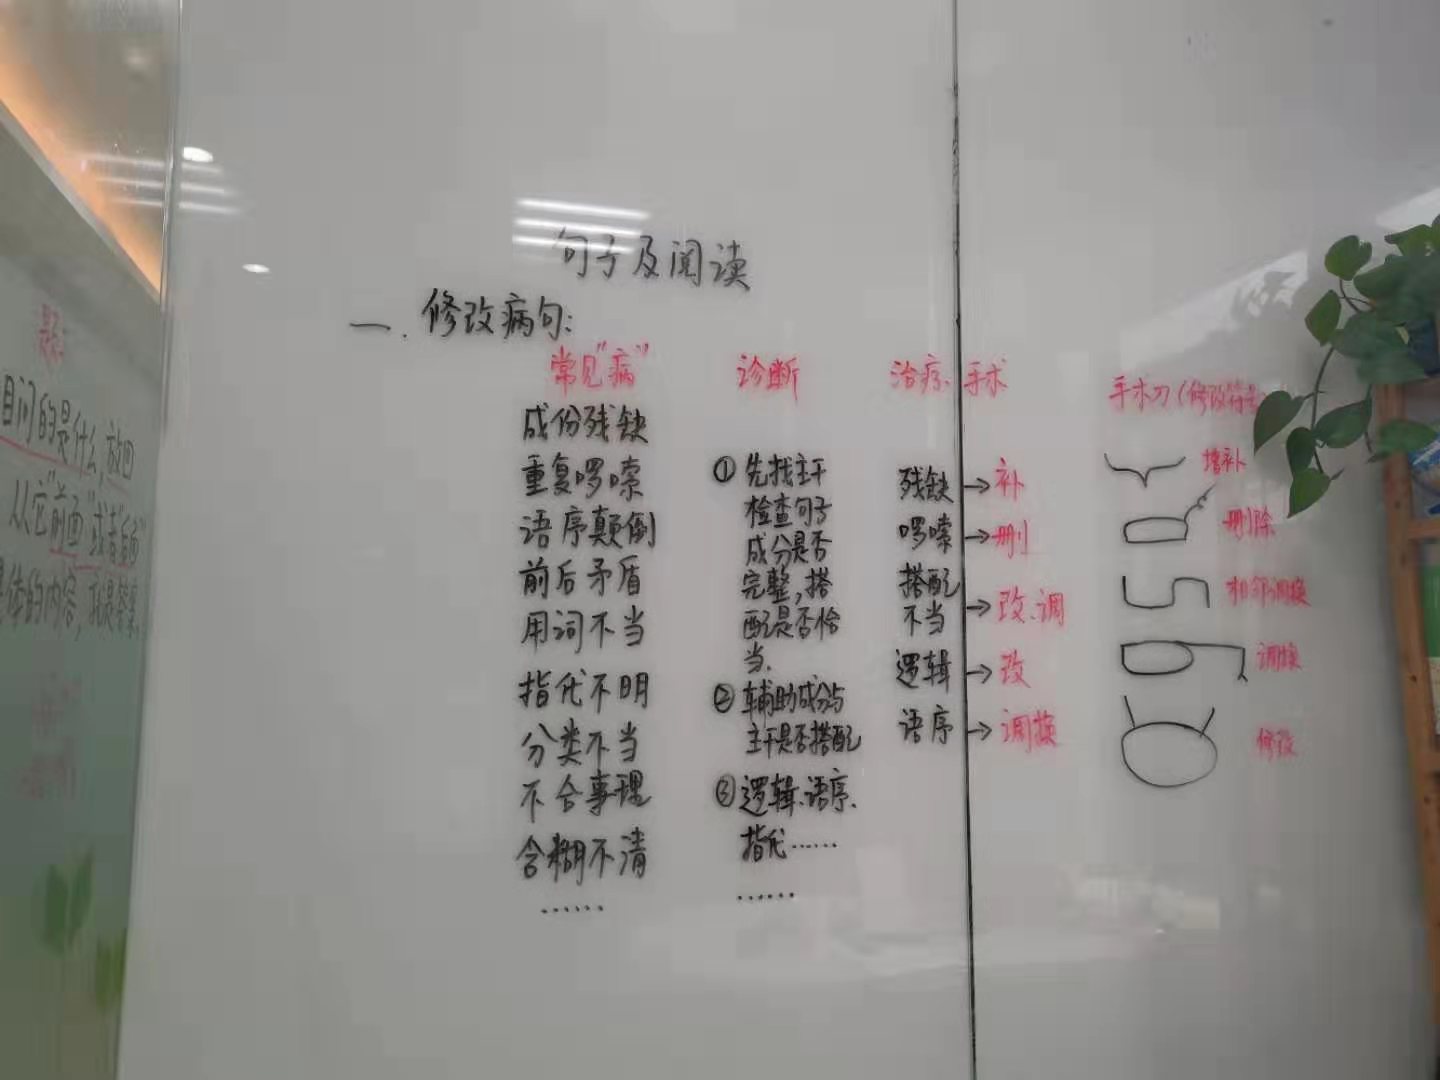 句子及阅读
一.修改病句:
常见"病"
成份残缺
重复啰嗦
语序颠倒
前后矛盾
用词不当
指代不明
分类不当
不合事理
含糊不清
……
诊断
①先找主干
检查句子
成分是否
完整,搭
配是否恰
当.
②辅助成分与
主干是否搭配
③逻辑、语序、
指代……
……
治疗、手术
残缺→补
啰嗦→删
搭配
不当→改、调
逻辑→改
语序→调换
手术刀(修改符号
增补
删除
相邻调换
调换
修改
题:
目问的是什么,放回
从它"前面"或者"后面"
体的内容,就是答案.